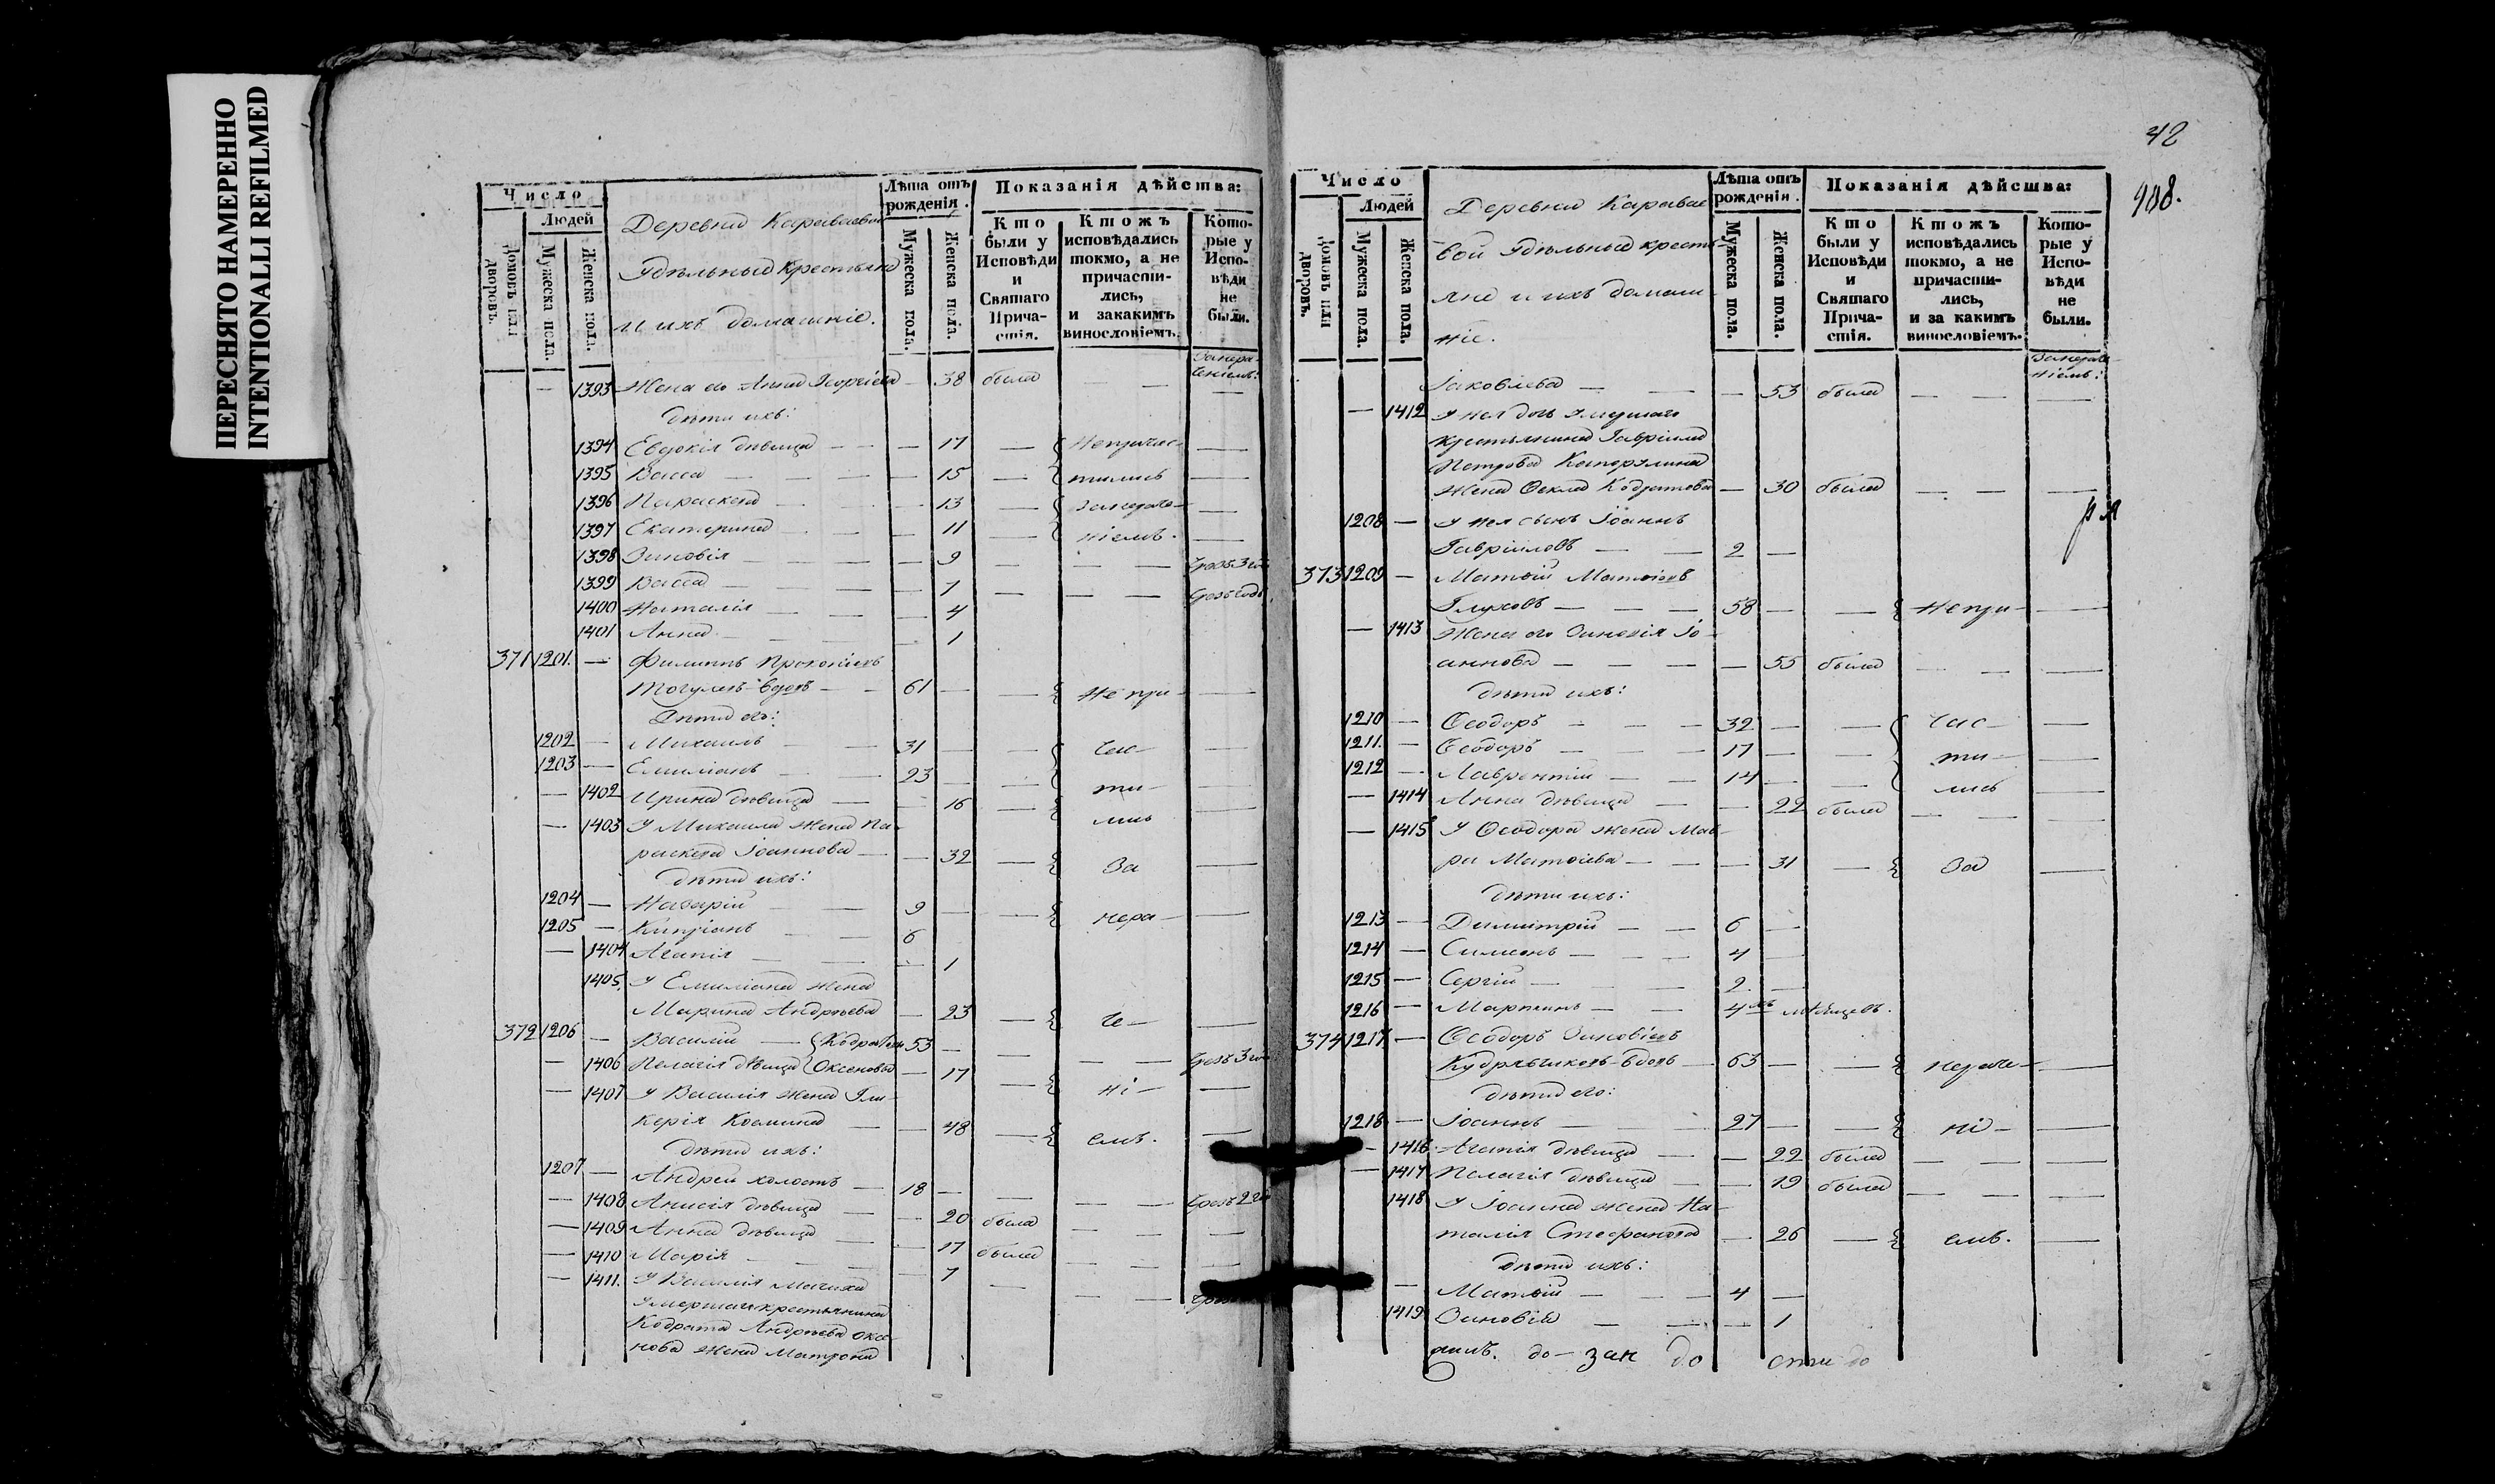 ПЕРЕСНЯТО НАМЕРЕННО
INTENTIONALLI REFILMED
Число
Людей
Домовъ или дворовъ.
Мужеска пола.
Женска пола.
Деревни Караваевой
Удѣльныя Крестьяне
и ихъ домашніе.
Лѣта отъ рожденія.
Мужеска пола.
Женска пола.
Показанія дѣйства:
Кто были у Исповѣди и Святаго Причастія.
Ктожъ исповѣдались токмо, а не причастились, и закакимъ винословіемъ.
Которые у Исповѣди не были.
— 1393 Жена его Анна Георгіева — 38 была —
дѣти ихъ:
1394 Евдокія дѣвица — — 17 — Непричас- —
1395 Васса — — 15 — тились —
1396 Параскева — — 13 — занераче- —
1397 Екатерина — — 11 — ніемъ. —
1398 Зиновія — — 9 — —
1399 Васса — — 7 — —
1400 Наталія — — 4
1401 Анна — — 1
371 1201. — Филиппъ Прокопіевъ
вдовъ — 61 — — Не при- —
Дѣти его:
1202 — Михаилъ — 31 — — час- —
1203 — Емиліанъ — 23 — — ти- —
— 1402 Ирина дѣвица — — 16 — лись —
— 1403 У Михаила жена Па-
раскева Іоаннова — — 32 — За —
дѣти ихъ:
1204 — Назарій — 9 — — нера- —
1205 — Кипріанъ — 6
— 1404 Агапія — — 1
1405. У Емиліана жена
Марина Андреева — 23 — че- —
372 1206 — Василій — Кодратовы 53 — — —
— 1406 Пелагія дѣвица Оксеновы — 17 — ні- —
— 1407 У Василія жена Гли-
керія Козмина — — 48 — емъ. —
дѣти ихъ:
1207 — Андрей холостъ — 18 — — —
— 1408 Анисія дѣвица — — 20 была — —
— 1409 Анна дѣвица — — 17 была — —
— 1410 Марія — — 7 — —
— 1411. У Василія мачиха
умершаго крестьянина
Кодрата Андреева Оксе-
нова жена Матрона
42
488.
Число
Людей
Домовъ или дворовъ.
Мужеска пола.
Женска пола.
Деревни Каравае-
вой Удѣльныя кресть-
яне и ихъ домаш-
ніе.
Лѣта отъ рожденія.
Мужеска пола.
Женска пола.
Показанія дѣйства:
Кто были у Исповѣди и Святаго Причастія.
Ктожъ исповѣдались токмо, а не причастились, и за какимъ винословіемъ.
Которые у Исповѣди не были.
Іаковлева — — — 53 была — — —
— 1412 У нея дочь умершаго
крестьянина Гавріила
Петрова
жена Ѳекла Кодратова — 30 была — — —
1208 — У нея сынъ Іоаннъ
Гавріиловъ — — 2 —
373 1209 — Матѳій Матѳіевъ
Глуховъ — — — 58 — — Непри- —
— 1413 Жена его Зиновія Іо-
аннова — — — — 55 была — — —
дѣти ихъ:
1210 — Ѳеодоръ — — — 32 — — час- —
1211. — Ѳеодоръ — — — 17 — — ти- —
1212 — Лаврентій — — 14 — — лись —
— 1414 Анна дѣвица — — 22 была — — —
— 1415 У Ѳеодора жена Мав-
ра Матѳіева — — — 31 — За —
дѣти ихъ:
1213 — Димитрій — — 6 —
1214 — Симеонъ — — — 4 —
1215 — Сергій — — — 2 —
1216 — Мартинъ — — 4хъ мѣсяцевъ.
374 1217 — Ѳеодоръ Зиновіевъ
вдовъ — 63 — — нераче- —
дѣти его:
1218 — Іоаннъ — — 27 — — ні- —
— 1416 Агапія дѣвица — — 22 была — — —
— 1417 Пелагія дѣвица — — 19 была — — —
1418 У Іоанна жена На-
талія Стефанова — 26 — емъ. —
дѣти ихъ:
— Матѳій — — — 4 —
1419 Зиновія — — — 1